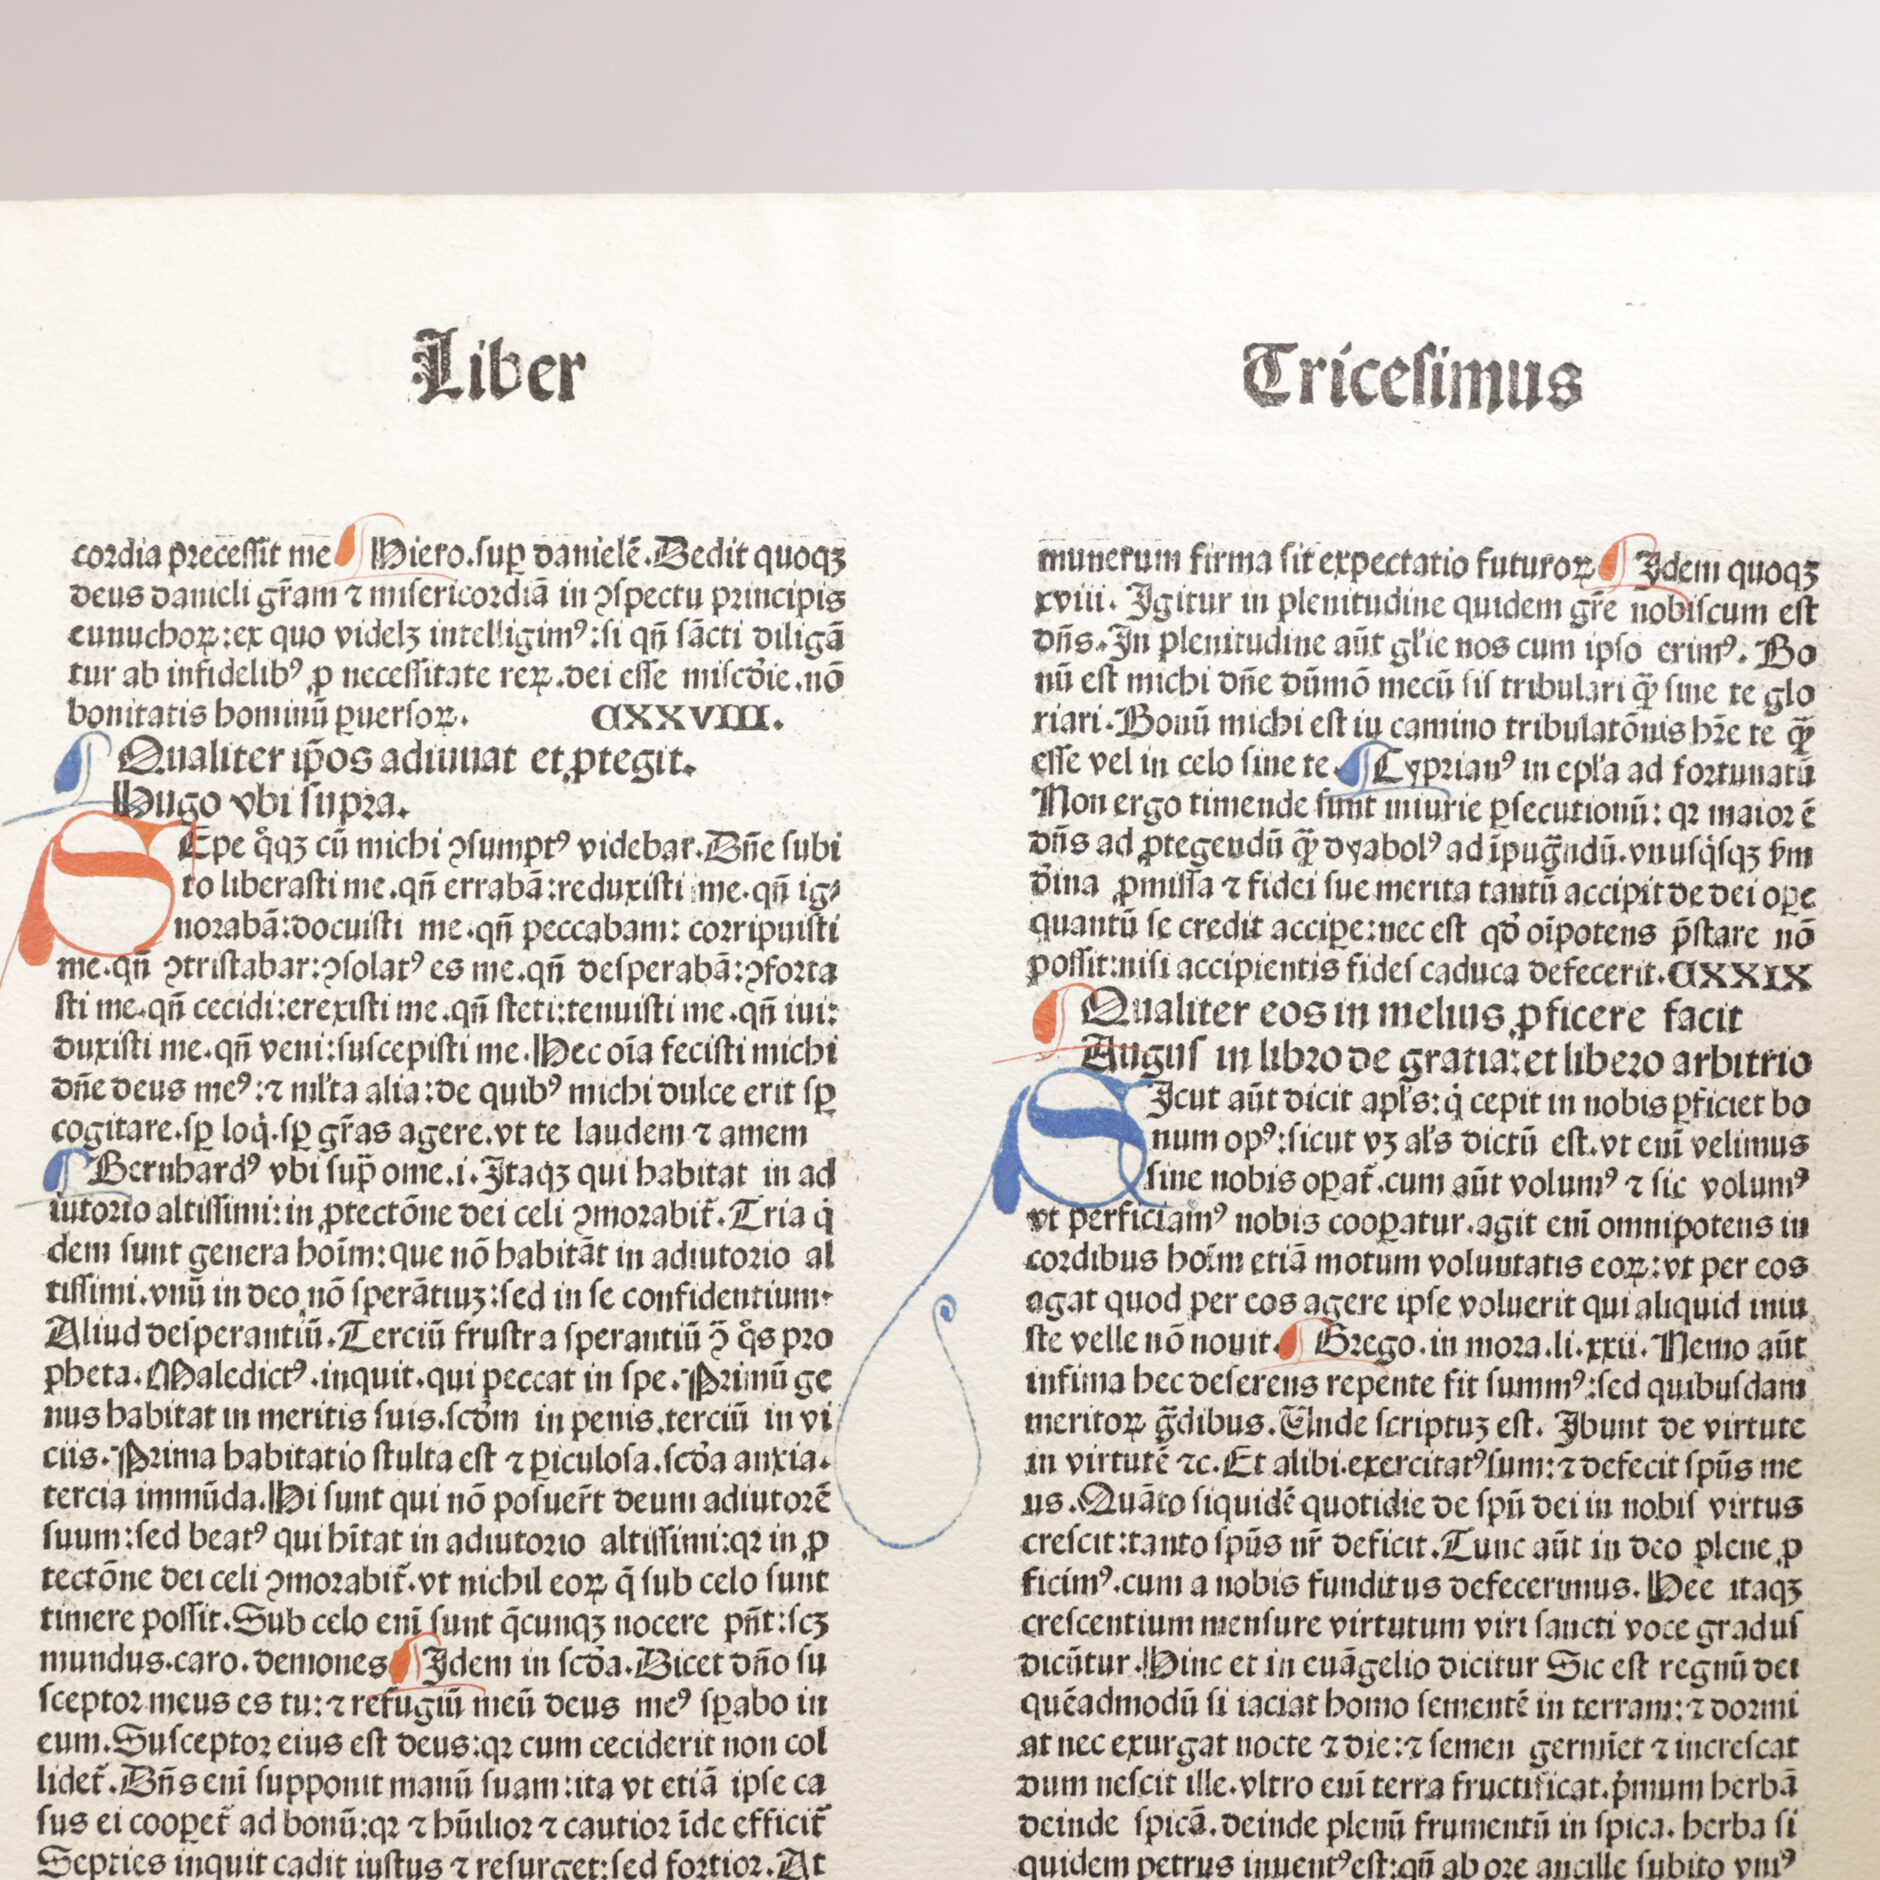 Liber
Tricesimus
cordia p̄cessit me Hiero.sup̱ danielē.Dedit quoqꝫ
deus danieli gr̄am ⁊ misericordiā in ꝯspectu principis
eunuchoꝝ:ex quo videlꝫ intelligimꝰ:si qn̄ sācti diligā
tur ab infidelibꝰ ꝓ necessitate reꝝ.dei esse miscd̓ie.nō
bonitatis hominū ꝑuersoꝝ. CXXVIII.
Qualiter ip̄os adiuuat et ꝓtegit.
Hugo vbi supra.
SEpe q̊qꝫ cū michi ꝯsumptꝰ videbar.Dn̄e subi
to liberasti me.qn̄ errabā:reduxisti me.qn̄ ig⸗
norabā:docuisti me.qn̄ peccabam: corripuisti
me.qn̄ ꝯtristabar:ꝯsolatꝰ es me.qn̄ desperabā:ꝯforta
sti me.qn̄ cecidi:erexisti me.qn̄ steti:tenuisti me.qn̄ iui:
duxisti me.qn̄ veni:suscepisti me.Hec oīa fecisti michi
dn̄e deus meꝰ:⁊ ml̓ta alia:de quibꝰ michi dulce erit sꝑ
cogitare.sꝑ loq̇.sꝑ gr̄as agere.vt te laudem ⁊ amem
Bernhardꝰ vbi sup̄ ome.i.Itaqꝫ qui habitat in ad
iutorio altissimi:in ꝓtectōne dei celi ꝯmorabit̄.Tria q̇
dem sunt genera hoīm:que nō habitāt in adiutorio al
tissimi.vnū in deo nō sperātiuꝫ:sed in se confidentium.
Aliud desperantiū.Terciū frustra sperantiū ꝯ̄ q̊s pro
pheta.Maledictꝰ.inquit.qui peccat in spe.Primū ge
nus habitat in meritis suis.scd̓m in penis.terciū in vi
ciis.Prima habitatio stulta est ⁊ ꝑiculosa.scd̓a anxia.
tercia immūda.Hi sunt qui nō posuer̄t deum adiutorē
suum:sed beatꝰ qui hītat in adiutorio altissimi:qꝛ in ꝓ
tectōne dei celi ꝯmorabit̄.vt nichil eoꝝ q̄ sub celo sunt
timere possit.Sub celo enī sunt q̄cunqꝫ nocere pn̄t:scꝫ
mundus.caro.demones Idem in scd̓a.Dicet dn̄o su
sceptor meus es tu:⁊ refugiū meū deus meꝰ sꝑabo in
eum.Susceptor eius est deus:qꝛ cum ceciderit non col
lidet̄.Dn̄s enī supponit manū suam:ita vt etiā ipse ca
sus ei cooꝑet̄ ad bonū:qꝛ ⁊ hūilior ⁊ cautior īde efficit̄
Septies inquit cadit iustus ⁊ resurget:sed fortior.At
munerum firma sit expectatio futuroꝝ Idem quoqꝫ
xviii. Igitur in plenitudine quidem gr̄e nobiscum est
dn̄s.In plenitudine aūt gl̓ie nos cum ipso erimꝰ. Bo
nū est michi dn̄e dūmō mecū sis tribulari q̄ꝫ sine te glo
riari.Bonū michi est in camino tribulatōnis hr̄e te q̄ꝫ
esse vel in celo sine te. Cyprianꝰ in epl̓a ad fortunatū
Non ergo timende sunt iniurie ꝑsecutionū: qꝛ maior ē
dn̄s ad ꝓtegendū q̄ꝫ dyabolꝰ ad īpugnādū.vnusq̇sqꝫ ẜm
d̓ina ꝓmissa ⁊ fidei sue merita tantū accipit de dei oꝑe
quantū se credit acciꝑe:nec est qd̓ oīpotens p̄stare nō
possit:nisi accipientis fides caduca defecerit.CXXIX
Qualiter eos in melius ꝓficere facit
Augus in libro de gratia:et libero arbitrio
SIcut aūt dicit apl̓s:q̇ cepit in nobis ꝑficiet bo
num opꝰ:sicut vꝫ al̓s dictū est.vt enī velimus
sine nobis oꝑat̄.cum aūt volumꝰ ⁊ sic volumꝰ
vt perficiamꝰ nobis cooꝑatur.agit enī omnipotens in
cordibus hoīm etiā motum voluntatis eoꝝ:vt per eos
agat quod per eos agere ipse voluerit qui aliquid iniu
ste velle nō nouit. Grego.in mora.li.xxii. Nemo aūt
infima hec deserens repente fit summꝰ:sed quibusdam
meritoꝝ g̃dibus.Unde scriptuꝫ est. Ibunt de virtute
in virtutē ⁊c.Et alibi.exercitatꝰ sum:⁊ defecit sp̄us me
us.Quāto siquidē quotidie de sp̄u dei in nobis virtus
crescit:tanto sp̄us nr̄ deficit.Tunc aūt in deo plene ꝓ
ficimꝰ.cum a nobis funditus defecerimus. Hee itaqꝫ
crescentium mensure virtutum viri sancti voce gradus
dicūtur.Hinc et in euāgelio dicitur Sic est regnū dei
quēadmodū si iaciat homo sementē in terram:⁊ dormi
at nec exurgat nocte ⁊ die:⁊ semen germīet ⁊ increscat
dum nescit ille.vltro enī terra fructificat.p̓mum herbā
deinde spicā.deinde plenū frumentū in spica.herba si
quidem petrus inuentꝰ est:qn̄ ab ore ancille subito vniꝰ